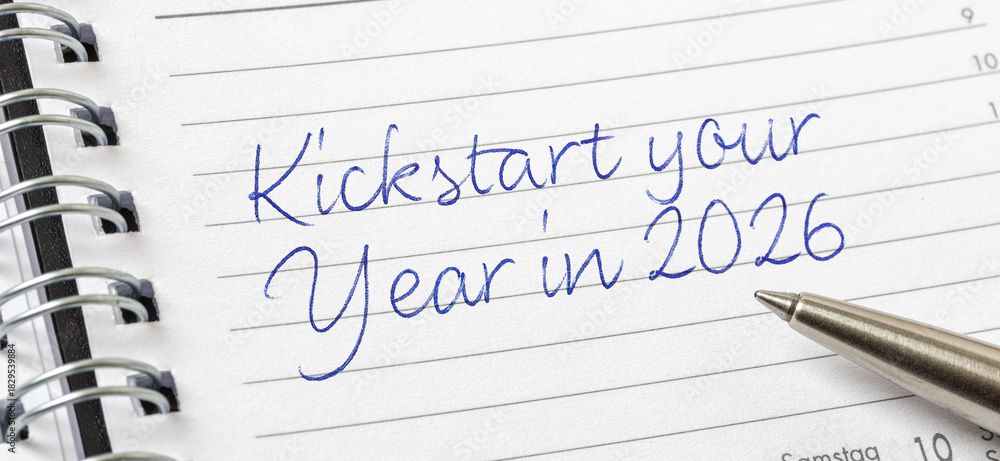 9
10
1
Kickstart your
Year in 2026
Samstag 10
Adobe Stock | #1829539884